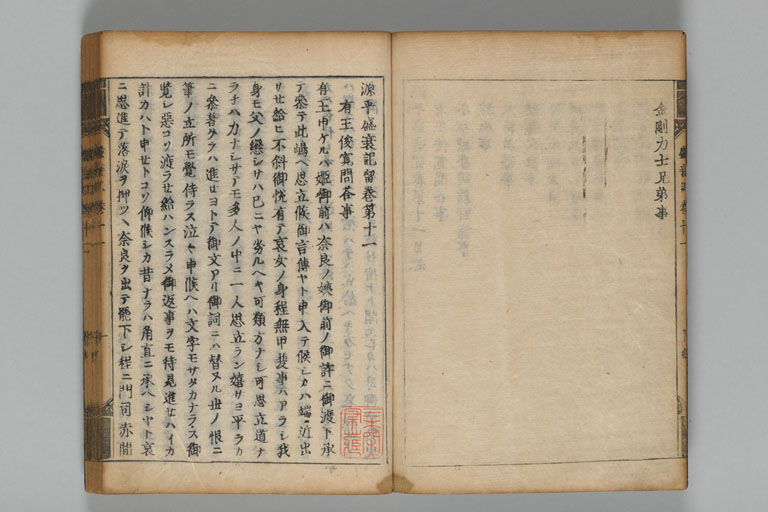 金剛力士兄弟事
源平盛衰記留卷第十一
有王俊寛問荅事
有王申ケルハ姫御前ハ奈良ノ姨御前ノ御許ニ御渡ト承
テ參テ此嶋ヘ思立候御言傳ヤト申入テ候シカハ端近出
サセ給ヒ不斜御悦有テ哀女ノ身程無甲斐事ハアラシ我
身モ父ノ戀シサハ已ニヤ劣ルヘキ可類方ナシ可思立道ナ
ラネハ力ナシサテモ多人ノ中ニ一人思立ラン嬉サヨ平ラカ
ニ參着タラハ進セヨトテ御文アリ御詞ニハ替ヌル世ノ恨ニ
筆ノ立所モ覺侍ラス泣々申候ヘハ文字モサタカナラス御
覧シ惡コソ渡ラセ給ハンスラメ御返事ヲモ待見進セハイカ
計カハト申セトコソ仰候シカ昔ナラハ角直ニ承ヘシヤト哀
ニ思進テ落淚ヲ押ヘツヽ奈良ヲ出テ罷下シ程ニ門司赤間